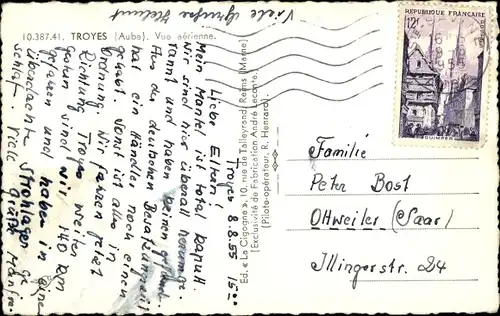 10.387.41. TROYES (Aube). Vue aérienne.
Viele Grüsse Helmut
REPUBLIQUE FRANÇAISE
12f
QUIMPER
POSTES
Troyes 8.8.55 15⁰⁰
Liebe Eltern!
Mein Mantel ist total kaputt
Wir sind hier überall herumge-
rannt und haben keinen
Aus der deutschen
hat ein Händler noch einen
gehabt. Sonst ist alles in
Ordnung. Wir fahren jetzt
Richtung Troyes weiter
Gestern sind wir 140 km
gefahren und haben in einer
überdachte Strohlager ge
schlaf. Viele Grüße Manfred
Ed. « La Cigogne », 10, rue de Talleyrand, Reims (Marne)
(Exclusivité de Fabrication André Leconte)
(Pilote-opérateur, R. Henrard)
Familie
Peter Bost
Ottweiler (Saar)
Illingerstr. 24